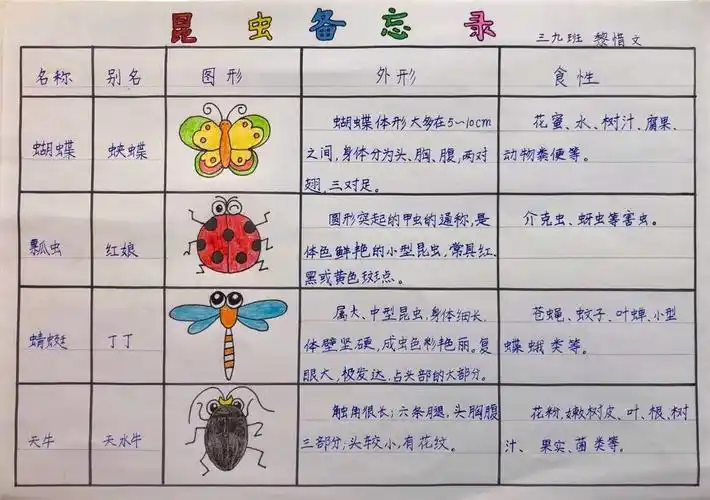 昆虫备忘录
三九班 黎惜文
名称 别名 图形 外形 食性
蝴蝶
蛱蝶
蝴蝶体形大多在5~10cm
之间,身体分为头、胸、腹,两对
翅,三对足。
花蜜、水、树汁、腐果、
动物粪便等。
瓢虫
红娘
圆形突起的甲虫的通称,是
体色鲜艳的小型昆虫,常具红、
黑或黄色斑点。
介克虫、蚜虫等害虫。
蜻蜓
丁丁
属大、中型昆虫,身体细长,
体壁坚硬,成虫色彩艳丽。复
眼大,极发达,占头部的大部分。
苍蝇、蚊子、叶蝉、小型
蝶蛾类等。
天牛
天水牛
触角很长;六条腿,头胸腹
三部分;头较小,有花纹。
花粉,嫩树皮、叶、根、树
汁、果实、菌类等。